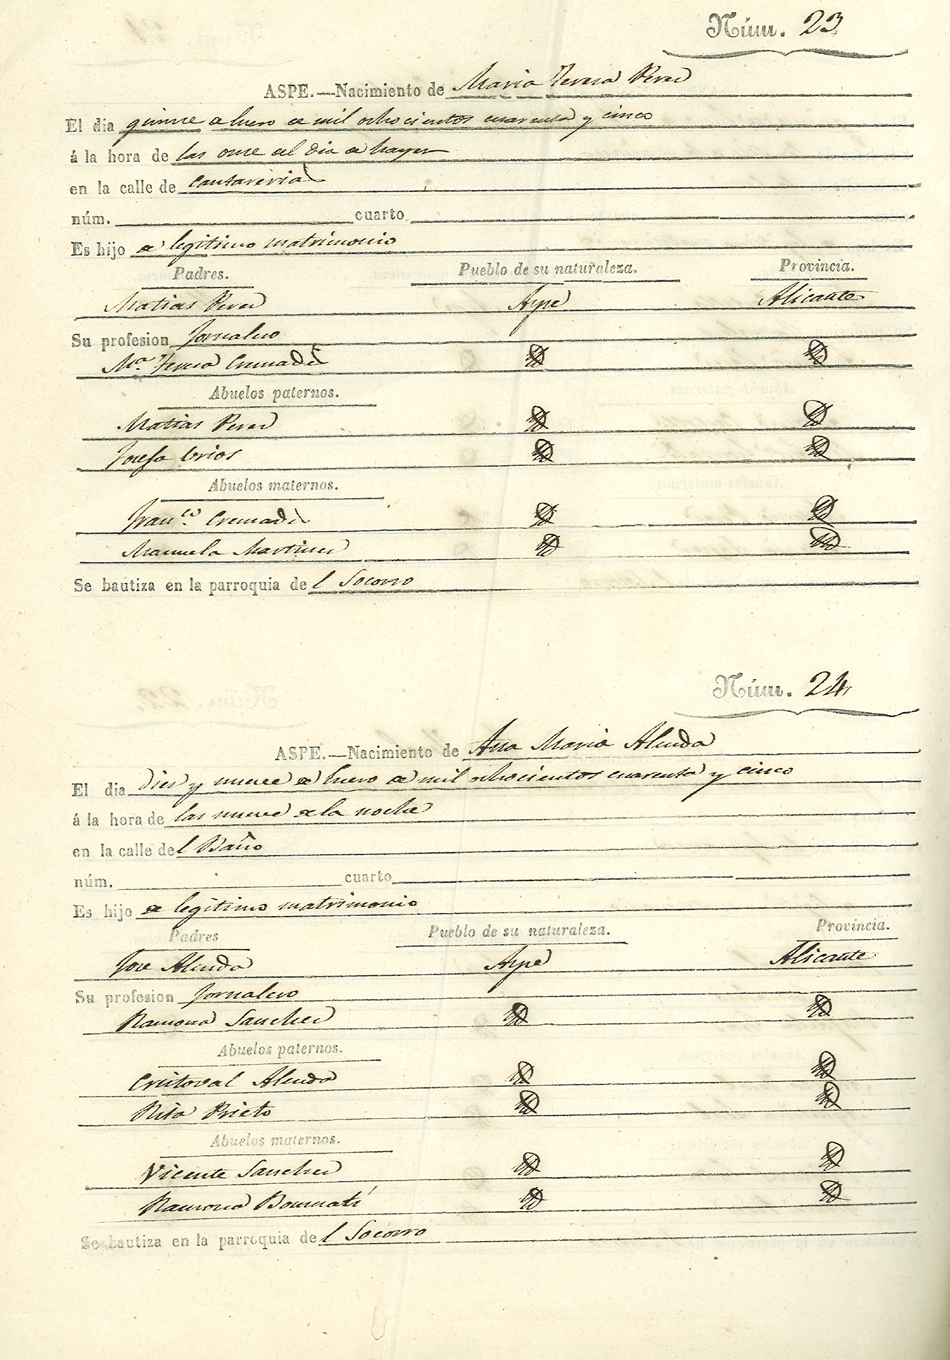 Núm. 23
ASPE.—Nacimiento de Maria Teresa Perez
El dia quinse de Enero de mil ochocientos cuarenta y cinco
á la hora de las onse del dia de hayer
en la calle de Cantareria
núm. cuarto
Es hijo de legitimo matrimonio
Padres. Pueblo de su naturaleza. Provincia.
Matias Perez Aspe Alicante
Su profesion Jornalero
Mª Teresa Cremades
Abuelos paternos.
Matias Perez
Josefa Erios
Abuelos maternos.
Franco. Cremades
Manuela Martinez
Se bautiza en la parroquia del Socorro
Núm. 24
ASPE.—Nacimiento de Ana Maria Alenda
El dia Diez y nueve de Enero de mil ochocientos cuarenta y cinco
á la hora de las nueve de la noche
en la calle del Baño
núm. cuarto
Es hijo de legitimo matrimonio
Padres Pueblo de su naturaleza. Provincia.
Jose Alenda Aspe Alicante
Su profesion Jornalero
Ramona Sanchez
Abuelos paternos.
Cristoval Alenda
Rita Prieto
Abuelos maternos.
Vicente Sanchez
Ramona Boumati
Se bautiza en la parroquia del Socorro